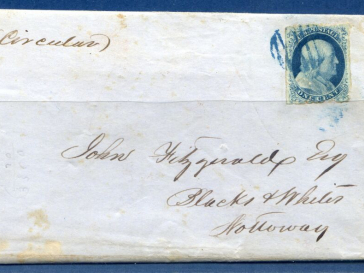 Circular)
U.S. POSTAGE
ONE CENT
John Fitzgerald Esq
Blacks & Whites
Nottoway